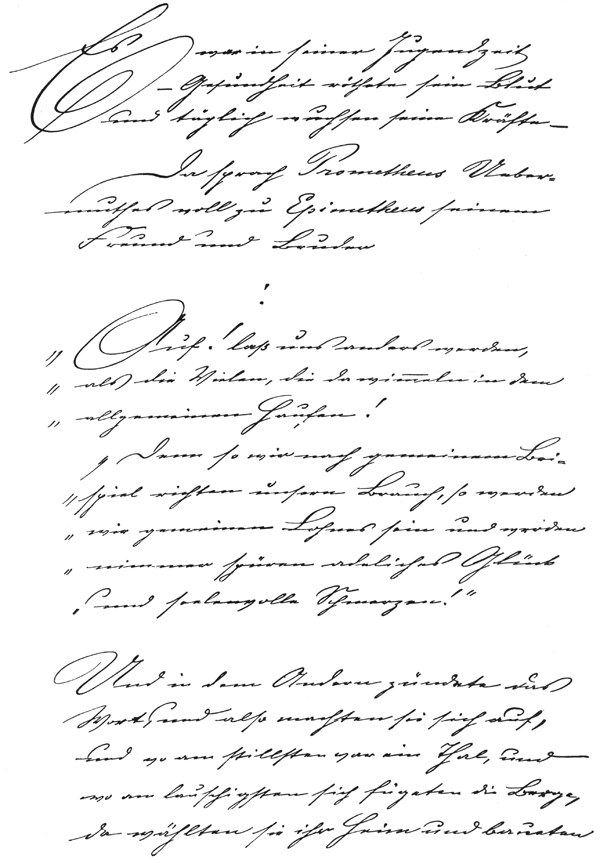 Es war in seiner Jugendzeit
– Gesundheit röthete sein Blut
und täglich wuchsen seine Kräfte –
Da sprach Prometheus Ueber-
muthes voll zu Epimetheus seinem
Freund und Bruder
:
„ Auf! laß uns anders werden,
„ als die Vielen, die da wim̅eln in dem
„ allgemeinen Haufen!
„ Denn so wir nach gemeinem Bei-
„ spiel richten unsern Brauch, so werden
„ wir gemeinen Lohnes sein und werden
„ nimmer spüren adeliches Glück
„ und seelenvolle Schmerzen!“
Und in dem Andern zündete das
Wort, und also machten sie sich auf,
und wo am stillsten war ein Thal, und
wo am lauschigsten sich fügeten die Berge,
da wählten sie ihr Heim und baueten